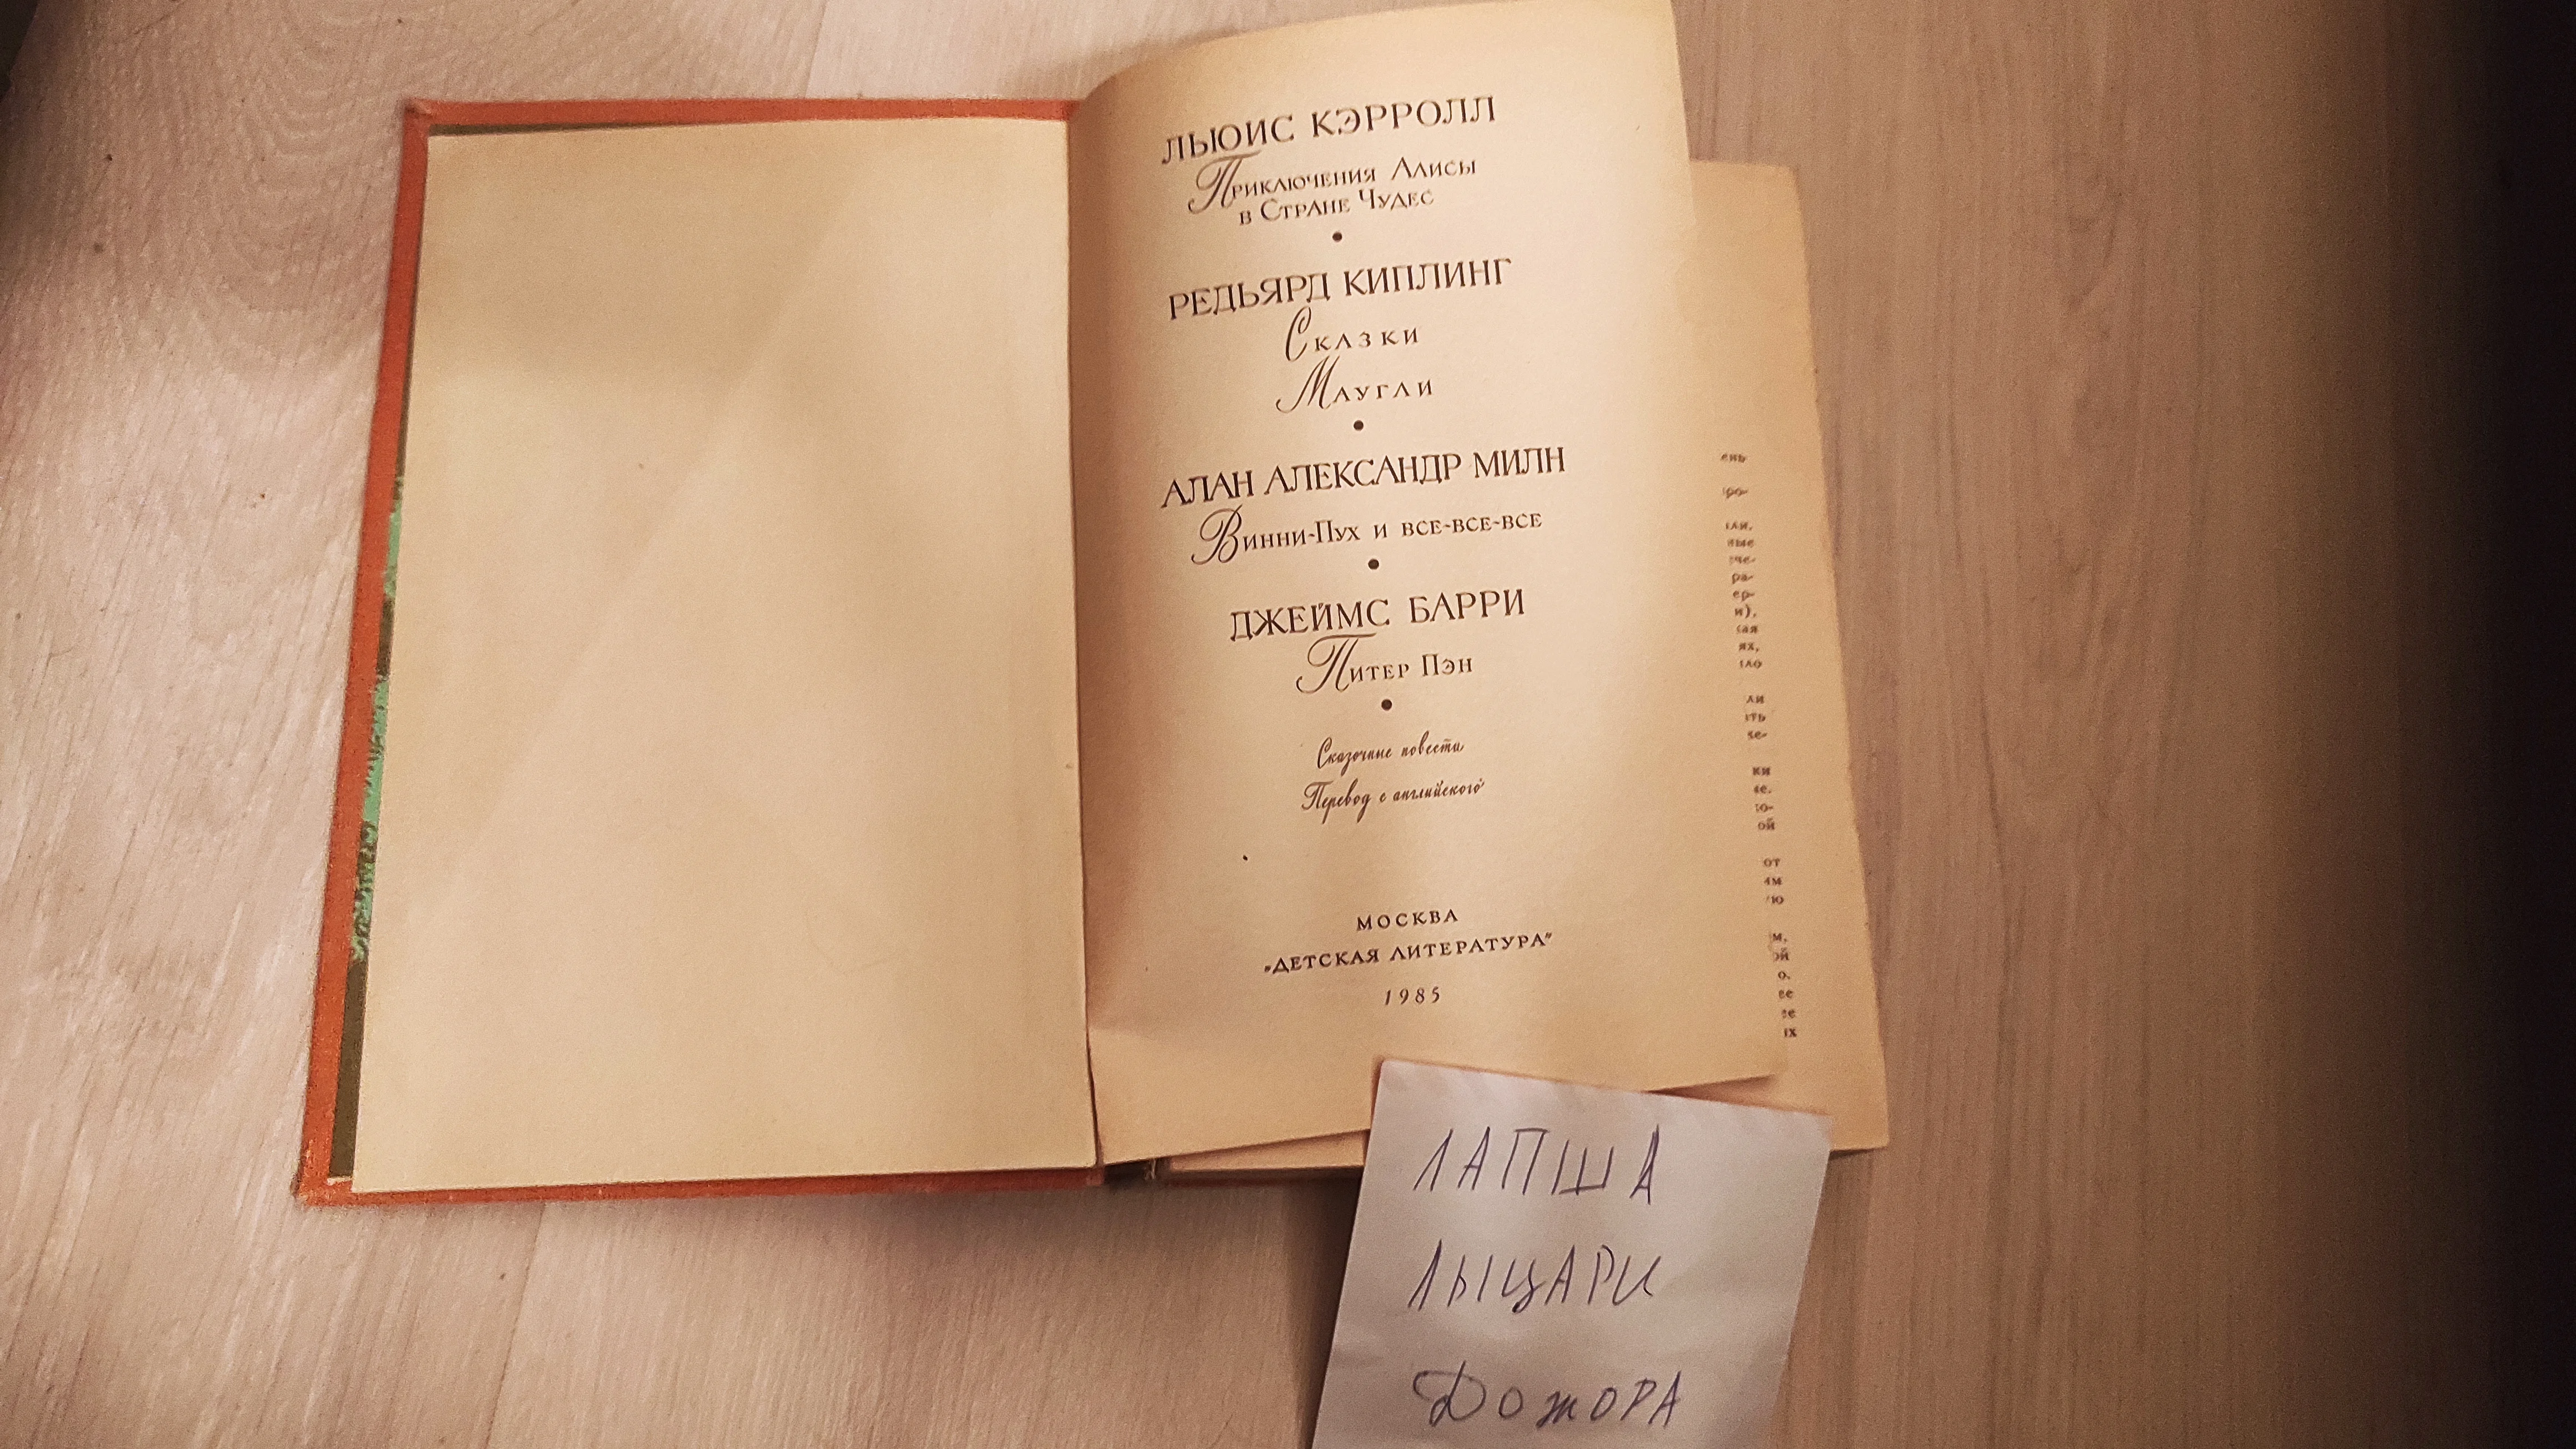 ЛЬЮИС КЭРРОЛЛ
Приключения Алисы
в Стране Чудес
•
РЕДЬЯРД КИПЛИНГ
Сказки
Маугли
•
АЛАН АЛЕКСАНДР МИЛН
Винни-Пух и все-все-все
•
ДЖЕЙМС БАРРИ
Питер Пэн
•
Сказочные повести
Перевод с английского
МОСКВА
„ДЕТСКАЯ ЛИТЕРАТУРА"
1985
ЛАПША
ЛЫЦАРИ
ДОЖОРА